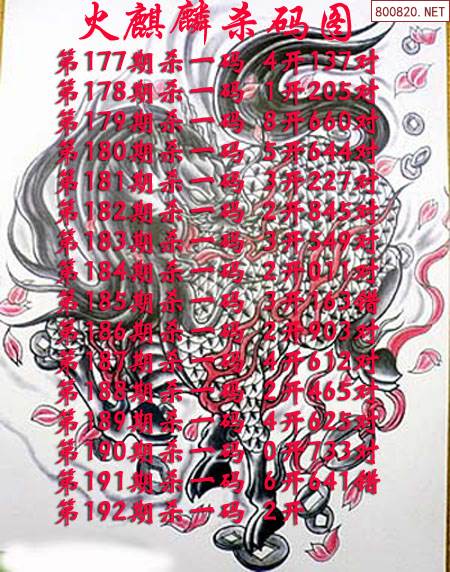 800820.NET
火麒麟杀码图
第177期杀一码 4开137对
第178期杀一码 1开205对
第179期杀一码 8开660对
第180期杀一码 5开644对
第181期杀一码 3开227对
第182期杀一码 2开845对
第183期杀一码 3开549对
第184期杀一码 2开011对
第185期杀一码 3开163错
第186期杀一码 2开903对
第187期杀一码 4开612对
第188期杀一码 2开465对
第189期杀一码 4开625对
第190期杀一码 0开733对
第191期杀一码 6开641错
第192期杀一码 2开